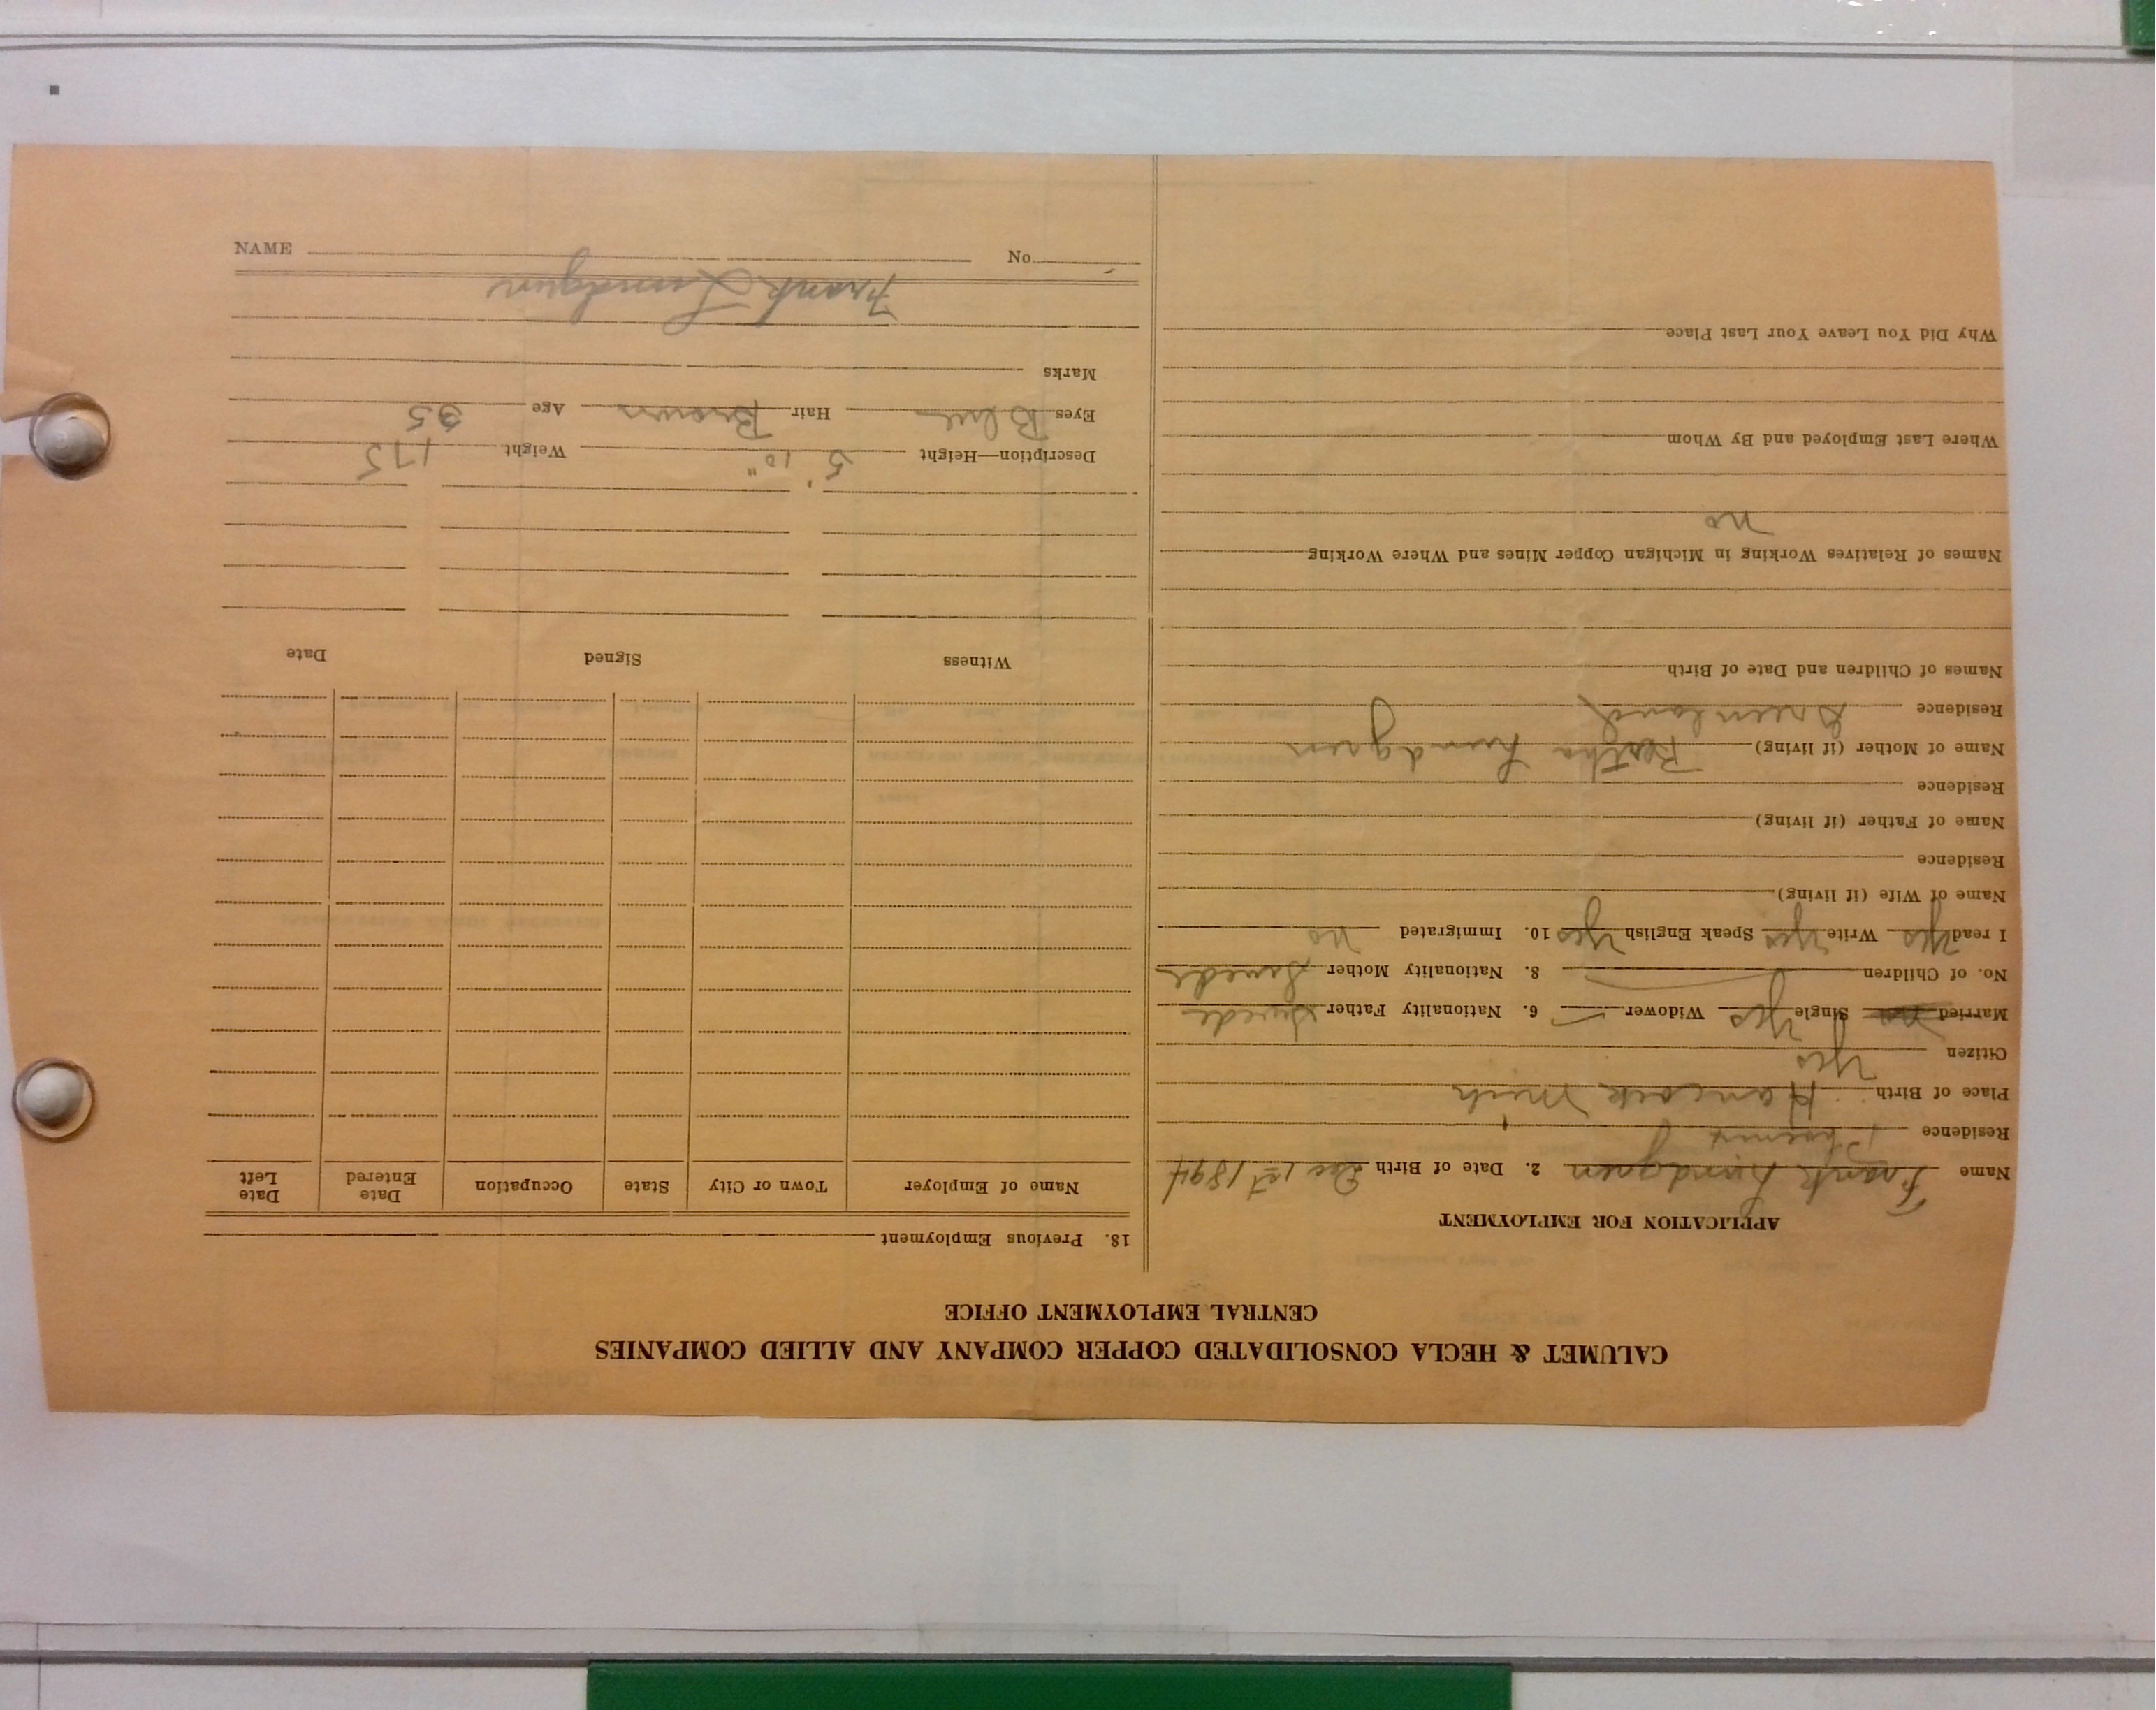 CALUMET & HECLA CONSOLIDATED COPPER COMPANY AND ALLIED COMPANIES
CENTRAL EMPLOYMENT OFFICE
APPLICATION FOR EMPLOYMENT
Name Frank Lundgren 2. Date of Birth Dec 1st 1894
Residence Phoenix
Place of Birth Hancock Mich
Citizen Yes
Married no Single Yes Widower 6. Nationality Father Swede
No. of Children 8. Nationality Mother Swede
I read Yes Write Yes Speak English Yes 10. Immigrated no
Name of Wife (if living)
Residence
Name of Father (if living)
Residence
Name of Mother (if living) Bertha Lundgren
Residence Greenland
Names of Children and Date of Birth
Names of Relatives Working in Michigan Copper Mines and Where Working
no
Where Last Employed and By Whom
Why Did You Leave Your Last Place
18. Previous Employment
Name of Employer Town or City State Occupation Date Entered Date Left
Witness Signed Date
Description—Height 5' 10" Weight 175
Eyes Blue Hair Brown Age 35
Marks
Frank Lundgren
NAME No.